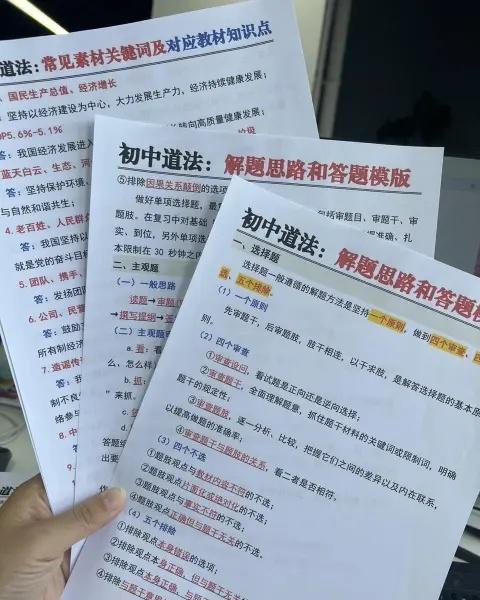 道法：常见素材关键词及对应教材知识点
国民生产总值、经济增长
坚持以经济建设为中心，大力发展生产力，经济持续健康发展；
5.6%-5.1%
答：我国经济发展进入
转向高质量健康发展；
蓝天白云、生态、河
垃圾
答：坚持保护环境、
与自然和谐共生；
4.老百姓、人民群众
答：我国坚持以
就是党的奋斗目标
5.团队、携手、
答：发扬团
6.公司、民营
答：鼓励
所有制经济
7.造谣传
答：我
制不良
络参与
8.中
9.
初中道法：解题思路和答题模版
⑤排除因果关系颠倒的选项
做好单项选择题，最
包括审题目、审题干、审
题肢。在复习中对基础
准确、扎
实、到位，另外单项选
本限制在 30 秒钟之
二、主观题
（一）一般思路
读题→审题
→撰写提纲→答
（二）主观题
a.看：看
么、怎么样
b.抓：
"来抓。
c.
d.
答题
出要
初中道法：解题思路和答题模
一、选择题
选择题一般遵循的解题方法是坚持一个原则，做到四个审查、四
选、五个排除。
（1）一个原则
先审题干，后审题肢，肢干相连，以干求肢，是解答选择题的基本原
则。
（2）四个审查
①审查设问，看试题是正向还是逆向选择；
②审查题干，全面理解题意，抓住题干材料的关键词或限制词，明确
题干的规定性；
③审查题肢，逐一分析、比较，把握它们之间的差异以及内在联系，
以提高做题的准确率；
④审查题干与题肢的关系，看二者是否相符。
（3）四个不选
①题肢观点与教材内容不符的不选；
②题肢观点片面化或绝对化的不选；
③题肢观点与事实不符的不选；
④题肢观点正确但与题干无关的不选。
（4）五个排除
①排除观点本身错误的选项；
②排除观点本身正确，但与题干无
③排除观点本身正确，与题
④排除与题干意思